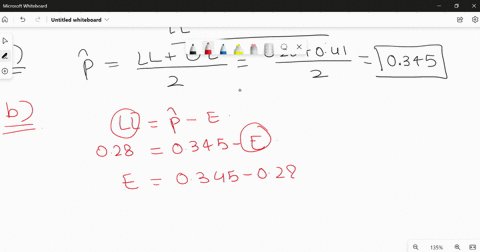 Microsoft Whiteboard
Untitled whiteboard
LL
)
p̂ = LL + UL / 2 = 0.28 + 0.41 / 2 = 0.345
b)
LL = p̂ - E
0.28 = 0.345 - E
E = 0.345 - 0.28
135%